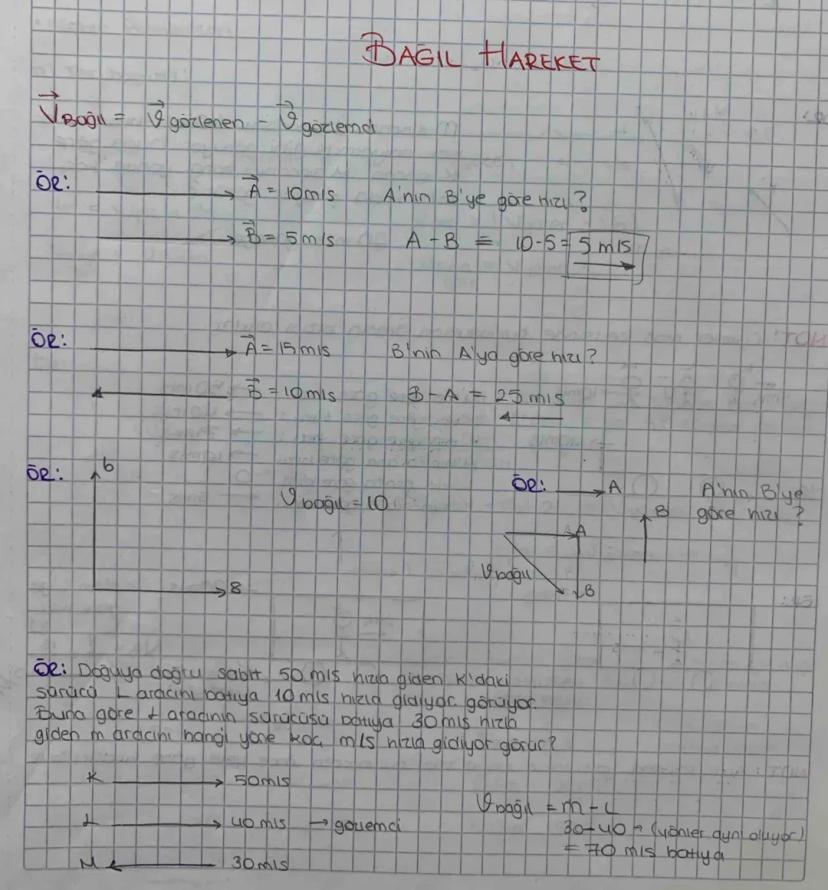 BAĞIL HAREKET
VBağıl = ϑgözlenen - ϑgözlemci
ÖR: A = 10 m/s A'nın B'ye göre hızı?
B = 5 m/s A - B = 10-5 = 5 m/s
ÖR: A = 15 m/s B'nin A'ya göre hızı?
B = 10 m/s B - A = 25 m/s
ÖR: 6
ϑbağıl = 10
8
ÖR: A A'nın B'ye
B göre hızı?
A
ϑbağıl
-B
ÖR: Doğuya doğru sabit 50 m/s hızla giden K'daki
sürücü L aracını batıya 10 m/s hızla gidiyor görüyor.
Buna göre L aracının sürücüsü batıya 30 m/s hızla
giden m aracını hangi yöne kaç m/s hızla gidiyor görür?
K 50 m/s
L 40 m/s → gözlemci
M 30 m/s
ϑbağıl = m - L
30-40 → (yönler aynı oluyor)
= 70 m/s batıya